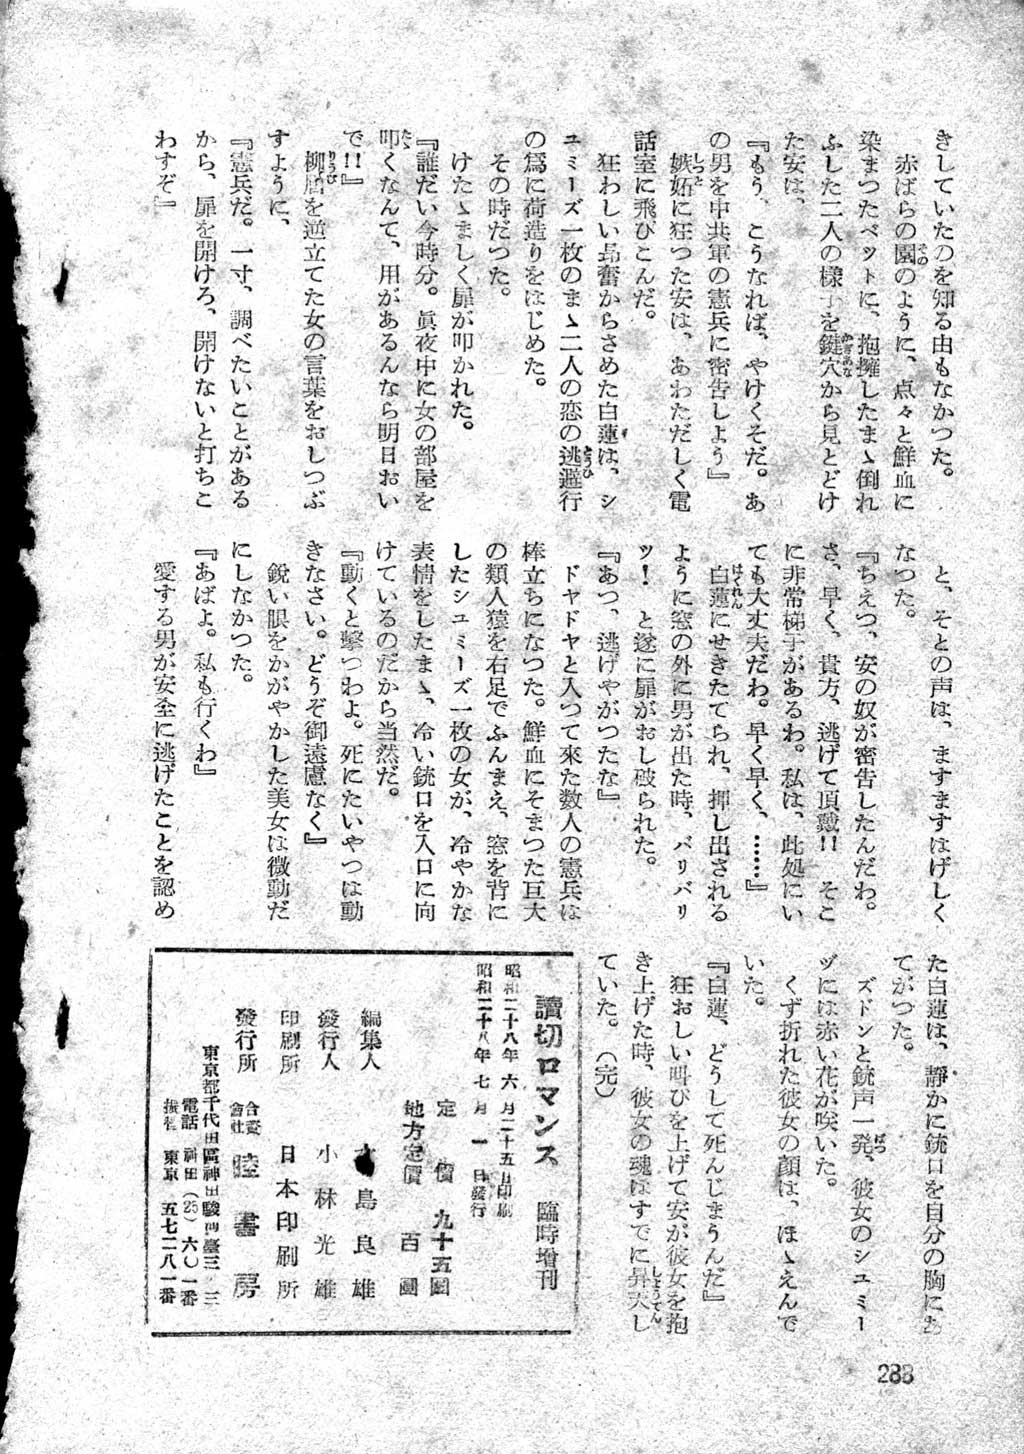 きしていたのを知る由もなかつた。
赤ばらの園のように、点々と鮮血に
染まつたベットに、抱擁したまゝ倒れ
ふした二人の様子を鍵穴から見とどけ
た安は、
『もう、こうなれば、やけくそだ。あ
の男を中共軍の憲兵に密告しよう』
嫉妬に狂つた安は、あわただしく電
話室に飛びこんだ。
狂わしい昻奮からさめた白蓮は、シ
ユミーズ一枚のまゝ二人の恋の逃避行
の爲に荷造りをはじめた。
その時だつた。
けたゝましく扉が叩かれた。
『誰だい今時分。眞夜中に女の部屋を
叩くなんて、用があるんなら明日おい
で!!』
柳眉を逆立てた女の言葉をおしつぶ
すように、
『憲兵だ。一寸、調べたいことがある
から、扉を開けろ、開けないと打ちこ
わすぞ』
と、そとの声は、ますますはげしく
なつた。
『ちえつ、安の奴が密告したんだわ。
さ、早く、貴方、逃げて頂戴!! そこ
に非常梯子があるわ。私は、此処にい
ても大丈夫だわ。早く早く、……』
白蓮にせきたてられ、押し出される
ように窓の外に男が出た時、バリバリ
ッ! と遂に扉がおし破られた。
『あつ、逃げやがつたな』
ドヤドヤと入つて来た数人の憲兵は
棒立ちになつた。鮮血にそまつた巨大
の類人猿を右足でふんまえ、窓を背に
したシユミーズ一枚の女が、冷やかな
表情をしたまゝ、冷い銃口を入口に向
けているのだから当然だ。
『動くと擊つわよ。死にたいやつは動
きなさい。どうぞ御遠慮なく』
鋭い眼をかがやかした美女は微動だ
にしなかつた。
『あばよ。私も行くわ』
愛する男が安全に逃げたことを認め
た白蓮は、静かに銃口を自分の胸にあ
てがつた。
ズドンと銃声一発、彼女のシユミー
ヅには赤い花が咲いた。
くず折れた彼女の顔は、ほゝえんで
いた。
『白蓮、どうして死んじまうんだ』
狂おしい叫びを上げて安が彼女を抱
き上げた時、彼女の魂はすでに昇天し
ていた。(完)
讀切ロマンス 臨時增刊
昭和二十八年 六 月二十五日印刷
昭和二十八年 七 月 一 日發行
定 價 九十五圓
地方定價 百 圓
編集人 島良雄
發行人 小林光雄
印刷所 日本印刷所
發行所 合資會社 睦書房
東京都千代田區神田駿河臺三ノ三
電話 神田(25)六〇一番
振替 東京 五七二八一番
288